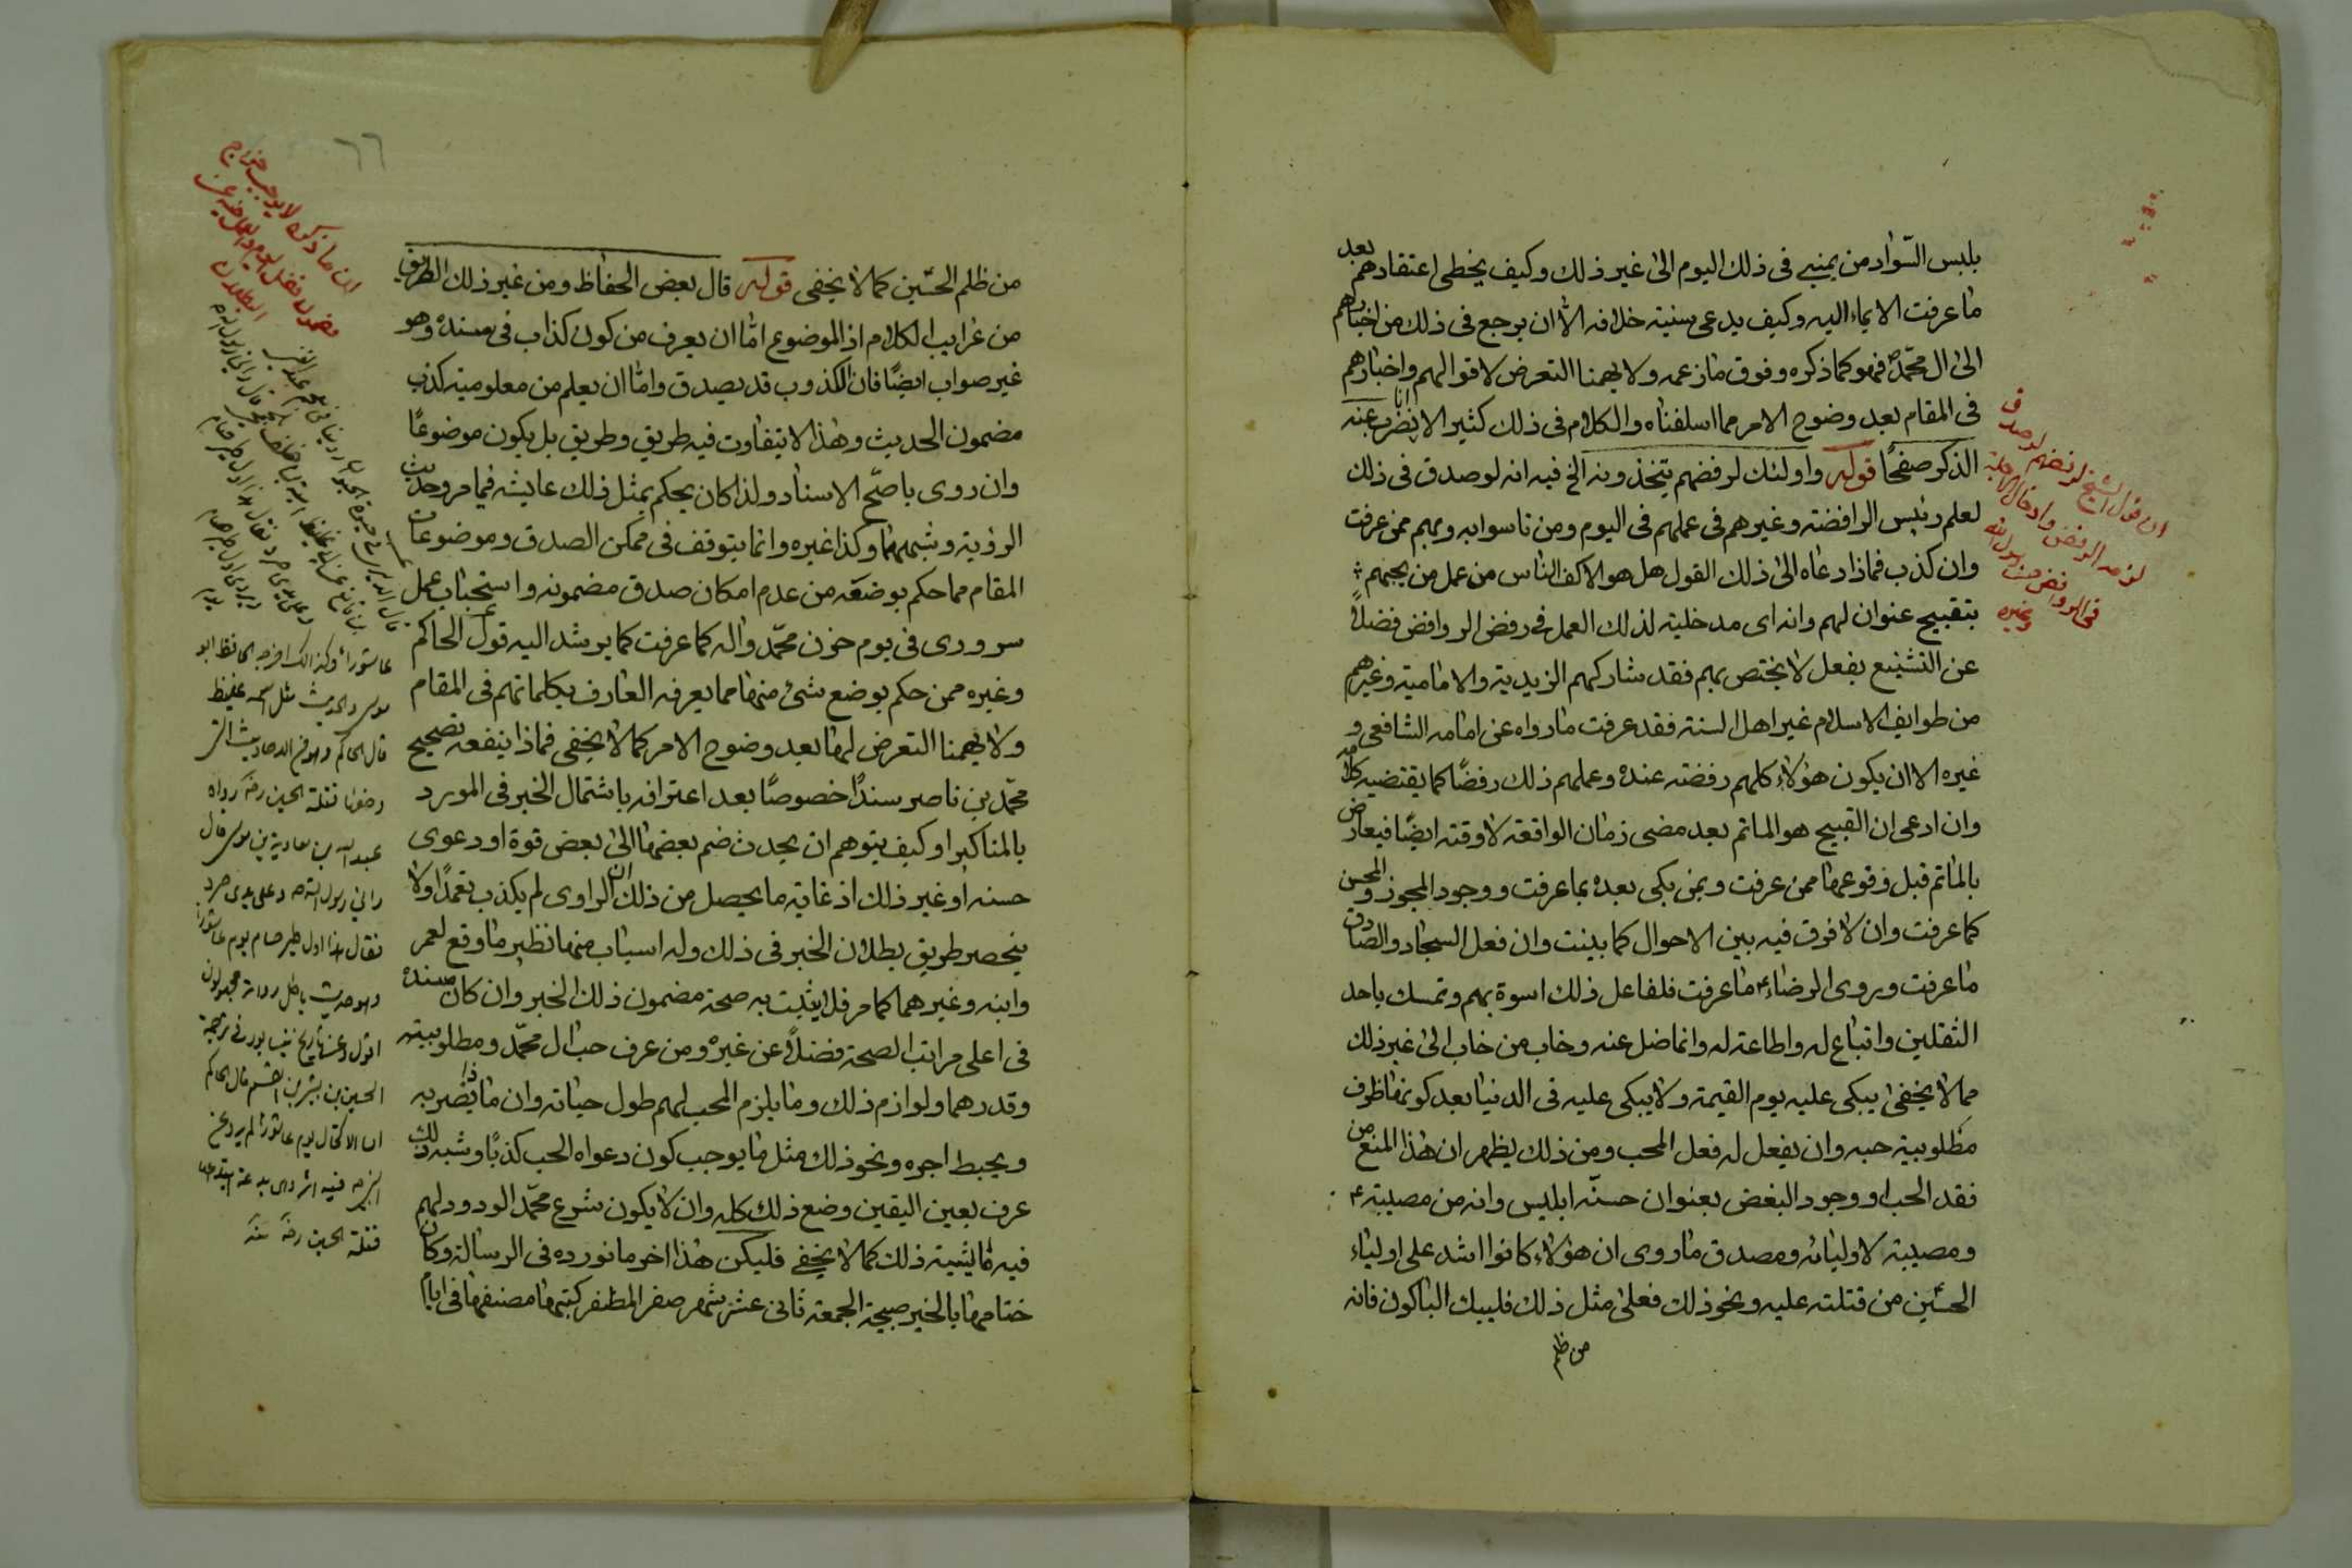 بلبس السّواد من يمنيى فى ذلك اليوم الى غير ذلك وكيف يخطى اعتقادهم بعد
ما عرفت الايماء اليه وكيف يدعى سنيته خلافه الا ان يرجع فى ذلك من اخبارهم
الى ال محمّد فهو كما ذكره وفوق ما زعمه ولا يهمنا التعرض لاقوالهم واخبارهم
فى المقام بعد وضوح الامر مما اسلفناه والكلام فى ذلك كثير الا انا نضرب عنه
الذكر صفحًا قوله واولئك لرفضهم يتخذونه الخ فيه انه لو صدق فى ذلك
لعلم رئيس الرافضة وغيرهم فى عملهم فى اليوم ومن تاسوا به وبهم ممن عرفت
وان كذب فماذا دعاه الى ذلك القول هل هو الا كف الناس من عمل من يحبهم
بتقبيح عنوان لهم وانه اى مدخلية لذلك العمل فى رفض الروافض فضلاً
عن التشنيع بفعل لا يختص بهم فقد شاركهم الزيدية والامامية وغيرهم
من طوايف الاسلام غير اهل السنة فقد عرفت ما رواه عن امامه الشافعى و
غيره الا ان يكون هؤلاء كلهم رفضة عنده وعملهم ذلك رفضًا كما يقتضيه كلامه
وان ادعى ان القبيح هو الماتم بعد مضى زمان الواقعة لا وقته ايضًا فيعارض
بالماتم قبل وقوعها ممن عرفت وبمن بكى بعده بما عرفت ووجود المجوز والمحسن
كما عرفت وان لا فرق فيه بين الاحوال كما بينت وان فعل السجاد والصادق
ما عرفت وبروى الرضاء ما عرفت فلفاعل ذلك اسوة بهم وتمسك باحد
الثقلين واتباع له واطاعة له وانما ضل عنه وخاب من خاب الى غير ذلك
مما لا يخفى يبكى عليه يوم القيمة ولا يبكى عليه فى الدنيا بعد كونها ظرف
مطلوبية حبه وان يفعل له فعل المحب ومن ذلك يظهر ان هذا المنع من
فقد الحب او وجود البغض بعنوان حسنّه ابليس وانه من مصيبته
ومصيبة لاوليائه ومصدق ما روى ان هؤلاء كانوا اشد على اولياء
الحسين من قتلته عليه ونحو ذلك فعلى مثل ذلك فليبك الباكون فانه
من ظلم
ان قول الشيخ لرفضهم لو صدق
لزمه الرفض وادخال الاجلة
فى الروافض منهم رسول الله
وغيره
٦٦
من ظلم الحسّين كما لا يخفى قوله قال بعض الحفاظ ومن غير ذلك الطريق
من غرايب الكلام اذ الموضوع امّا ان يعرف من كون كذاب فى مسنده وهو
غير صواب ايضًا فان الكذوب قد يصدق وامّا ان يعلم من معلومية كذب
مضمون الحديث وهذا لا يتفاوت فيه طريق وطريق بل يكون موضوعًا
وان روى باصحّ الاسناد ولذا كان يحكم بمثل ذلك عايشه فيما مر وحديث
الرؤية وشبههما وكذا غيره وانما يتوقف فى ممكن الصدق وموضوعات
المقام مما حكم بوضعه من عدم امكان صدق مضمونه واستحباب عمل
سرورى فى يوم حزن محمّد واله كما عرفت كما يرشد اليه قول الحاكم
وغيره ممن حكم بوضع شئ منها مما يعرفه العارف بكلماتهم فى المقام
ولا يهمنا التعرض لها بعد وضوح الامر كما لا يخفى فماذا ينفعه تصحيح
محمّد بن ناصر سندًا خصوصًا بعد اعترافه باشتمال الخبر فى المورد
بالمناكير او كيف يتوهم ان يحدث ضم بعضها الى بعض قوة او دعوى
حسنه او غير ذلك اذ غاية ما يحصل من ذلك ان الراوى لم يكذب تعمدًا ولا
ينحصر طريق بطلان الخبر فى ذلك وله اسباب منها نظير ما وقع لعمر
وابنه وغيرهما كما مر فلا يثبت به صحة مضمون ذلك الخبر وان كان سنده
فى اعلى مراتب الصحة فضلاً عن غيره ومن عرف حب ال محمّد ومطلوبيته
وقدرهما ولوازم ذلك وما يلزم المحب لهم طول حياته وان ماذا يضر به
ويحبط اجره ونحو ذلك مثل ما يوجب كون دعواه الحب كذبًا وشبه ذلك
عرف بعين اليقين وضع ذلك كله وان لا يكون بشرع محمّد الودود لهم
فيه شائبة ذلك كما لا يخفى فليكن هذا اخر ما نورده فى الرسالة وكان
ختامها بالخير صبيحة الجمعة ثانى عشر شهر صفر المظفر كتبها مصنفها فى ايام
ان ما ذكره لا يوجب
عاشورا وكذلك اخرجه الحافظ ابو
موسى والحديث مثل اسمه غليظ
قال الحاكم وهو من الاحاديث التى
وضعها قتلة الحسين رضه رواه
عبد الله بن معاوية بن موسى قال
رانى رسول الله ص وعلى يدى صرد
فقال هذا اول طير صام يوم عاشورا
وهو حديث باطل رواته مجهولون
الحسين بن بشر بن القسم قال الحاكم
ان الاكتحال يوم عاشورا لم يرو عن
النبى ص فيه اثر وهى بدعة ابتدعها
قتلة الحسين رضه